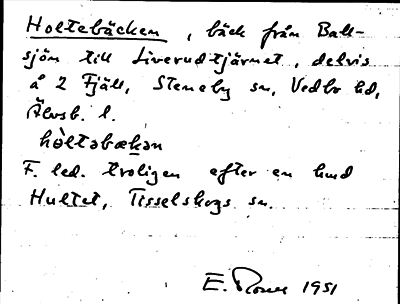 Holtebäcken, bäck från Ball-
sjön till Liverudtjärnet, delvis
å 2 Fjäll, Steneby sn, Vedbo hd,
Älvsb. l.
hòltəbækən
F. led. troligen efter en hmd
Hultet, Tisselskogs sn.
E. 1951